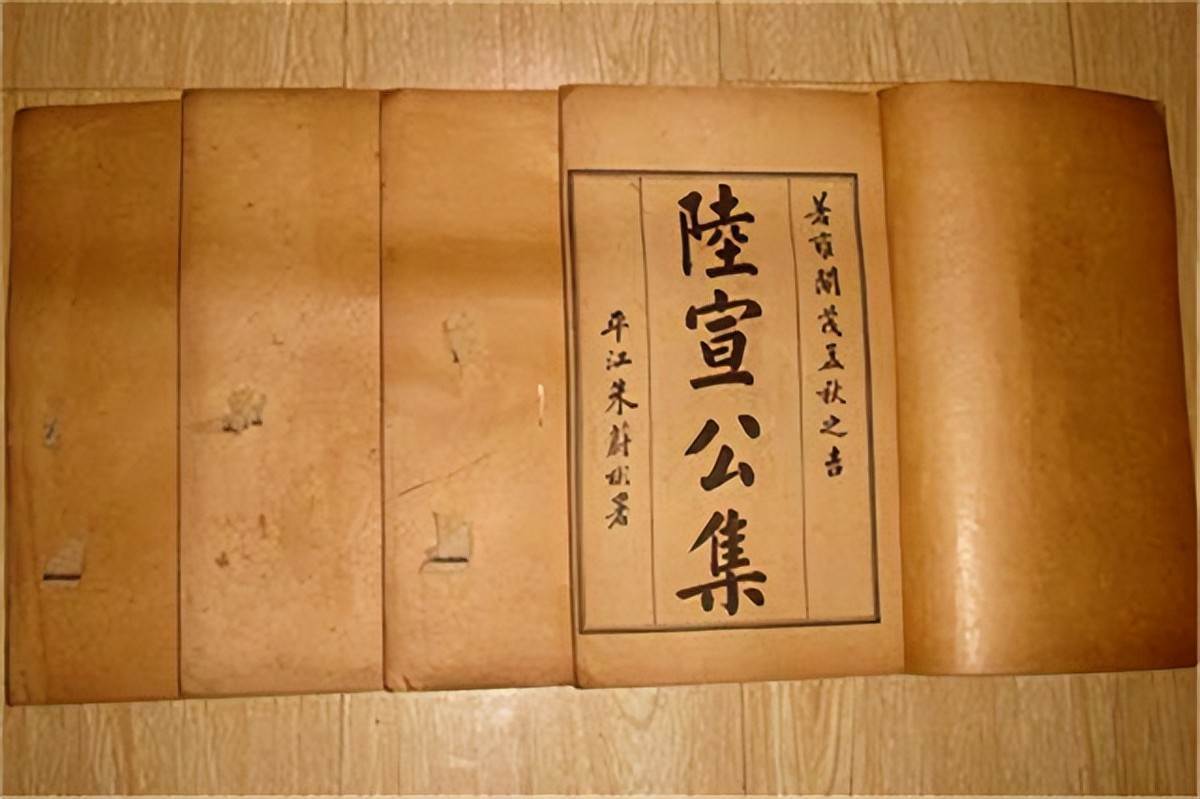 著雍閹茂孟秋之吉
陸宣公集
平江朱蔚彬署